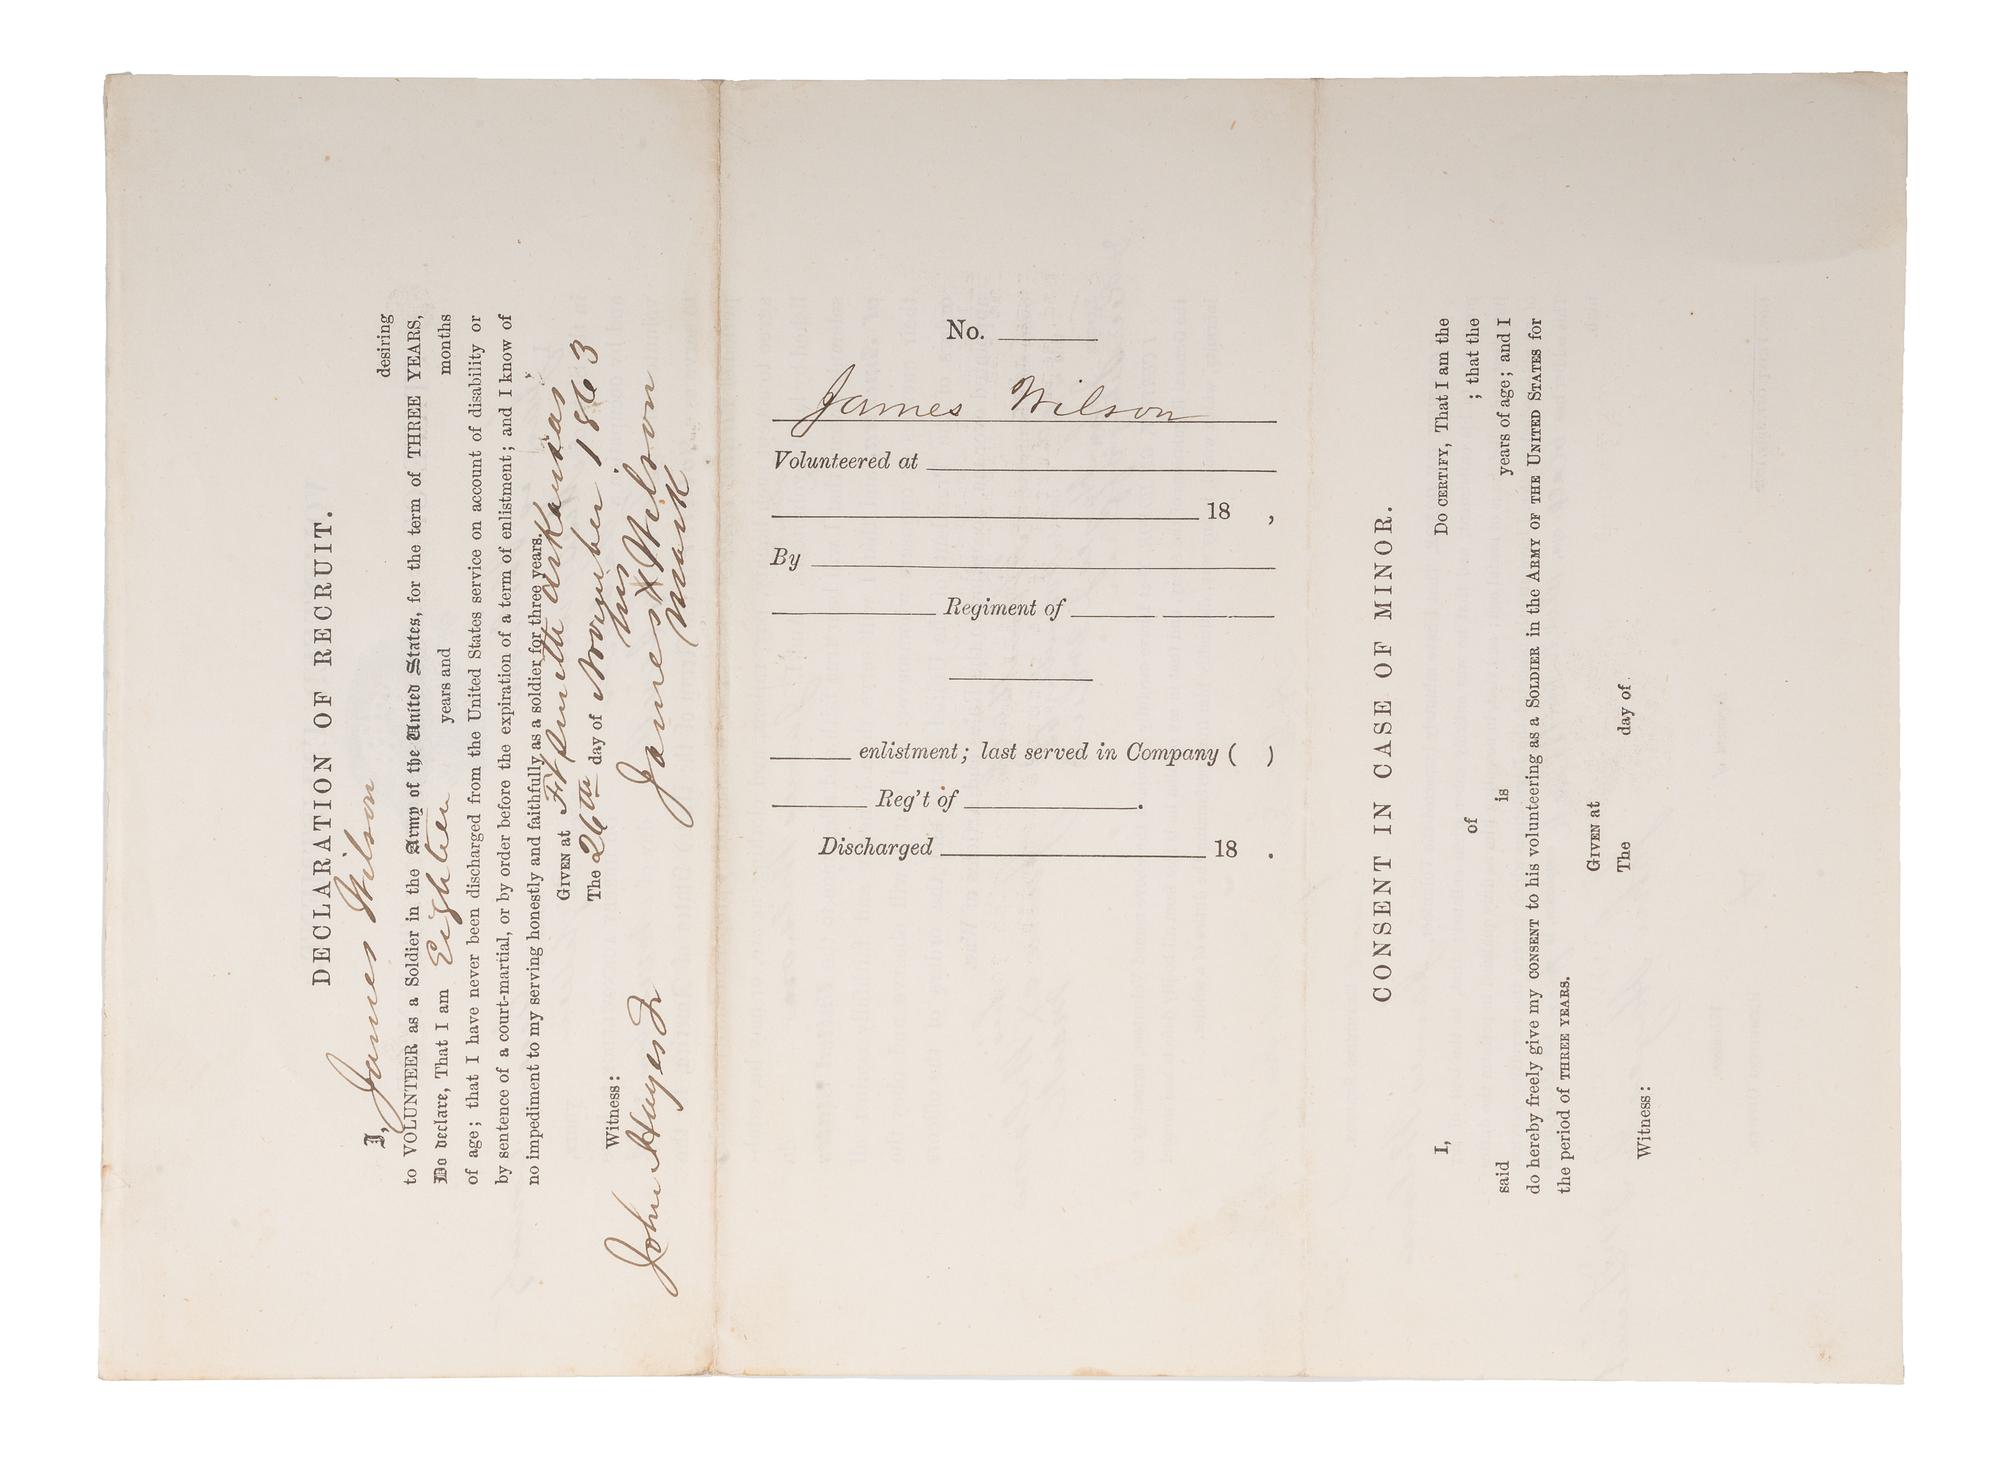 DECLARATION OF RECRUIT.
I, James Wilson desiring
to VOLUNTEER as a Soldier in the Army of the United States, for the term of THREE YEARS,
Do declare, That I am Eighteen years and months
of age; that I have never been discharged from the United States service on account of disability or
by sentence of a court-martial, or by order before the expiration of a term of enlistment; and I know of
no impediment to my serving honestly and faithfully as a soldier for three years.
GIVEN at Ft Smith Arkansas
The 26th day of November 1863
his
Witness: James X Wilson
John Hayes Jr mark
No.
James Wilson
Volunteered at
18 ,
By
Regiment of
enlistment; last served in Company ( )
Reg't of .
Discharged 18 .
CONSENT IN CASE OF MINOR.
I, Do CERTIFY, That I am the
of ; that the
said is years of age; and I
do hereby freely give my CONSENT to his volunteering as a SOLDIER in the ARMY OF THE UNITED STATES for
the period of THREE YEARS.
GIVEN at
The day of
Witness: